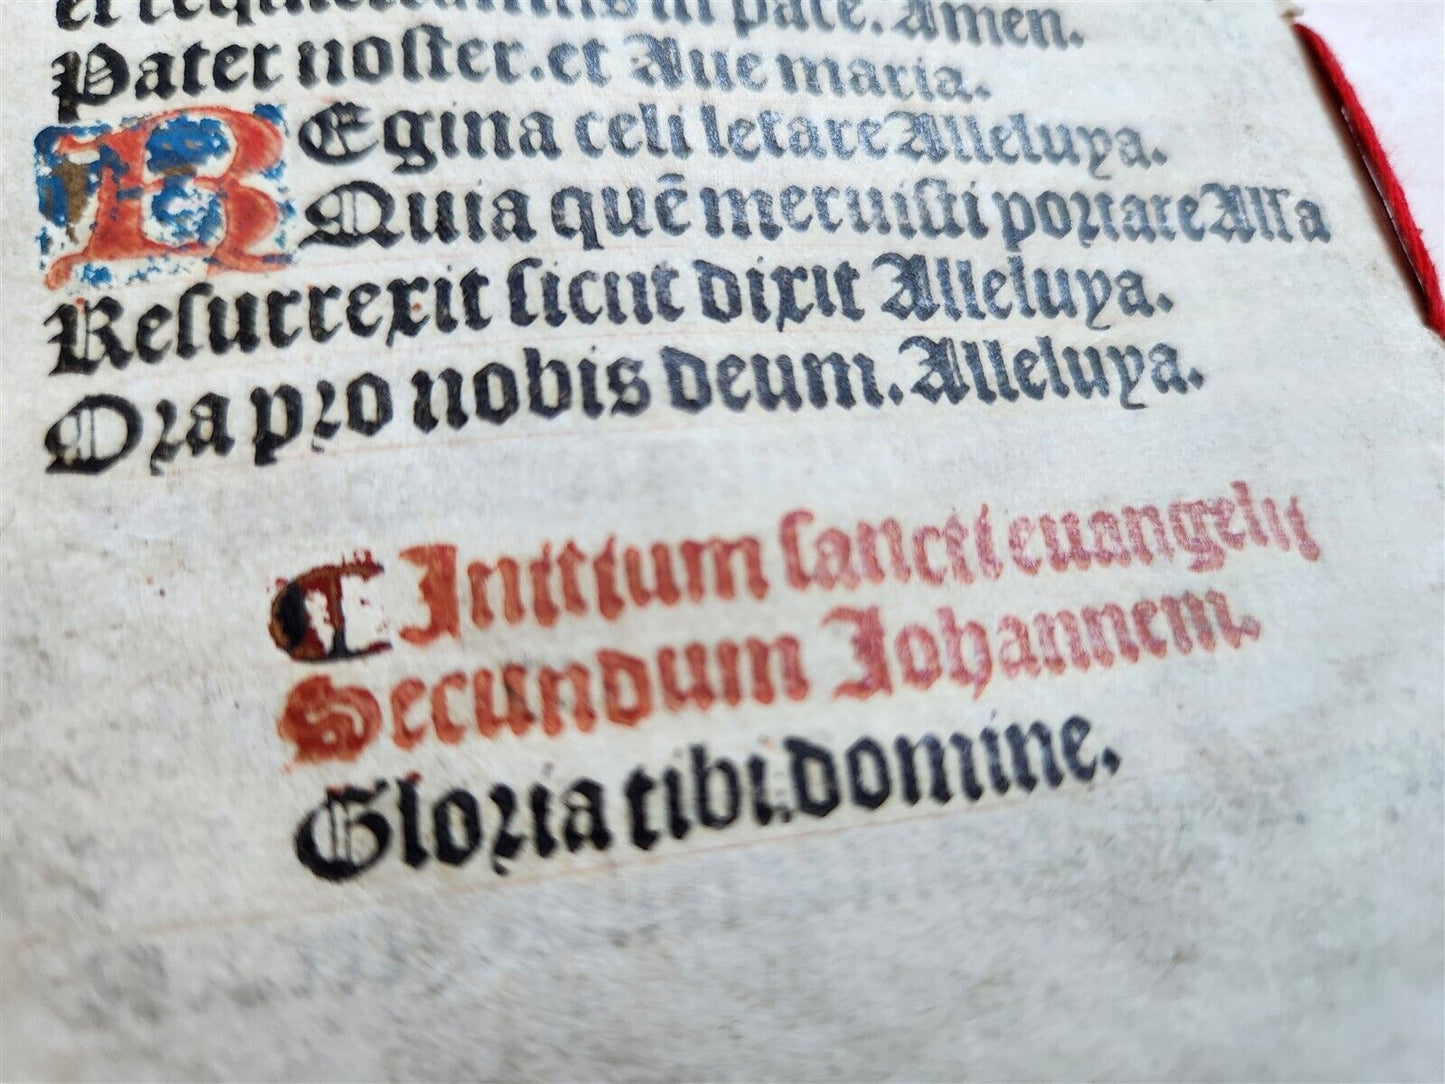 in pace. Amen.
Pater noster. et Aue maria.
REgina celi letare Alleluya.
Quia quē meruisti portare Alla
Resurrexit sicut dixit Alleluya.
Ora pro nobis deum. Alleluya.
Initium sancti euangelij
Secundum Johannem.
Gloria tibi domine.